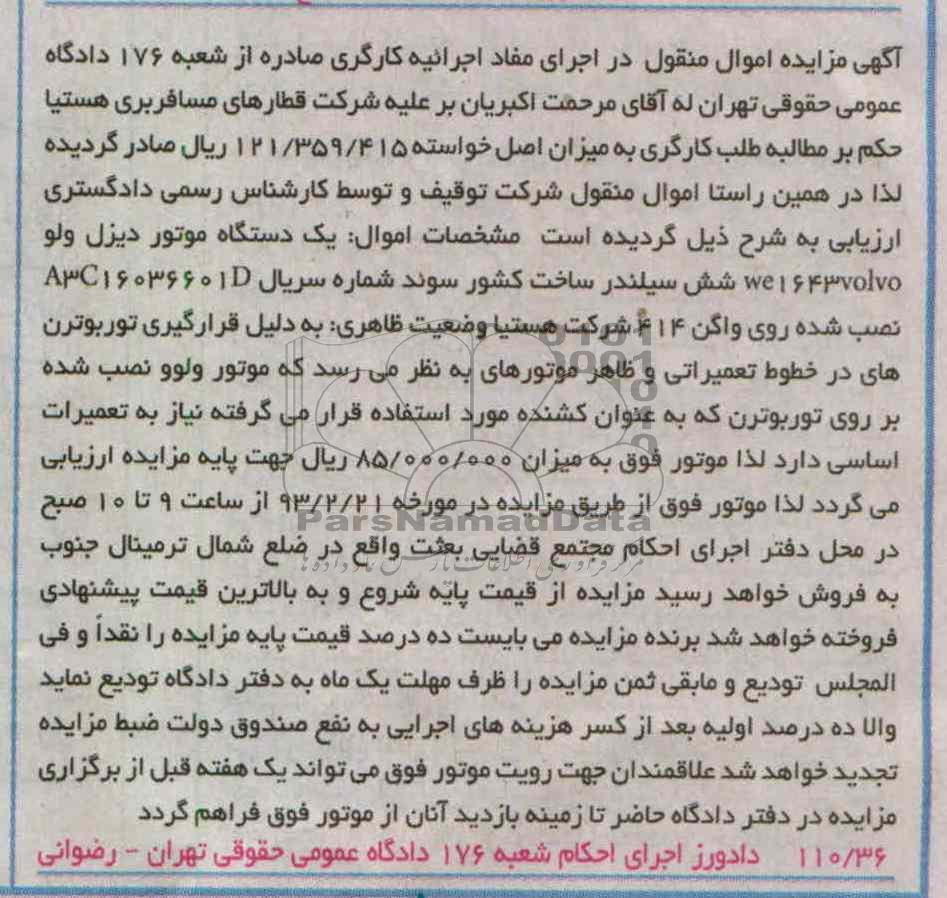 آگهی مزایده اموال منقول در اجرای مفاد اجرائیه کارگری صادره از شعبه ۱۷۶ دادگاه
عمومی حقوقی تهران له آقای مرحمت اکبریان بر علیه شرکت قطارهای مسافربری هستیا
حکم بر مطالبه طلب کارگری به میزان اصل خواسته ۱۲۱/۳۵۹/۴۱۵ ریال صادر گردیده
لذا در همین راستا اموال منقول شرکت توقیف و توسط کارشناس رسمی دادگستری
ارزیابی به شرح ذیل گردیده است مشخصات اموال: یک دستگاه موتور دیزل ولو
we۱۶۴۳volvo شش سیلندر ساخت کشور سوند شماره سریال A۳C۱۶۰۳۶۶۰۱D
نصب شده روی واگن ۴۱۴ شرکت هستیا وضعیت ظاهری: به دلیل قرارگیری توربوترن
های در خطوط تعمیراتی و ظاهر موتورهای به نظر می رسد که موتور ولوو نصب شده
بر روی توربوترن که به عنوان کشنده مورد استفاده قرار می گرفته نیاز به تعمیرات
اساسی دارد لذا موتور فوق به میزان ۸۵/۰۰۰/۰۰۰ ریال جهت پایه مزایده ارزیابی
می گردد لذا موتور فوق از طریق مزایده در مورخه ۹۳/۲/۲۱ از ساعت ۹ تا ۱۰ صبح
ParsNamadData
در محل دفتر اجرای احکام مجتمع قضایی بعثت واقع در ضلع شمال ترمینال جنوب
به فروش خواهد رسید مزایده از قیمت پایه شروع و به بالاترین قیمت پیشنهادی
فروخته خواهد شد برنده مزایده می بایست ده درصد قیمت پایه مزایده را نقداً و فی
المجلس تودیع و مابقی ثمن مزایده را ظرف مهلت یک ماه به دفتر دادگاه تودیع نماید
والا ده درصد اولیه بعد از کسر هزینه های اجرایی به نفع صندوق دولت ضبط مزایده
تجدید خواهد شد علاقمندان جهت رویت موتور فوق می تواند یک هفته قبل از برگزاری
مزایده در دفتر دادگاه حاضر تا زمینه بازدید آنان از موتور فوق فراهم گردد
۱۱۰/۳۶ دادورز اجرای احکام شعبه ۱۷۶ دادگاه عمومی حقوقی تهران - رضوانی